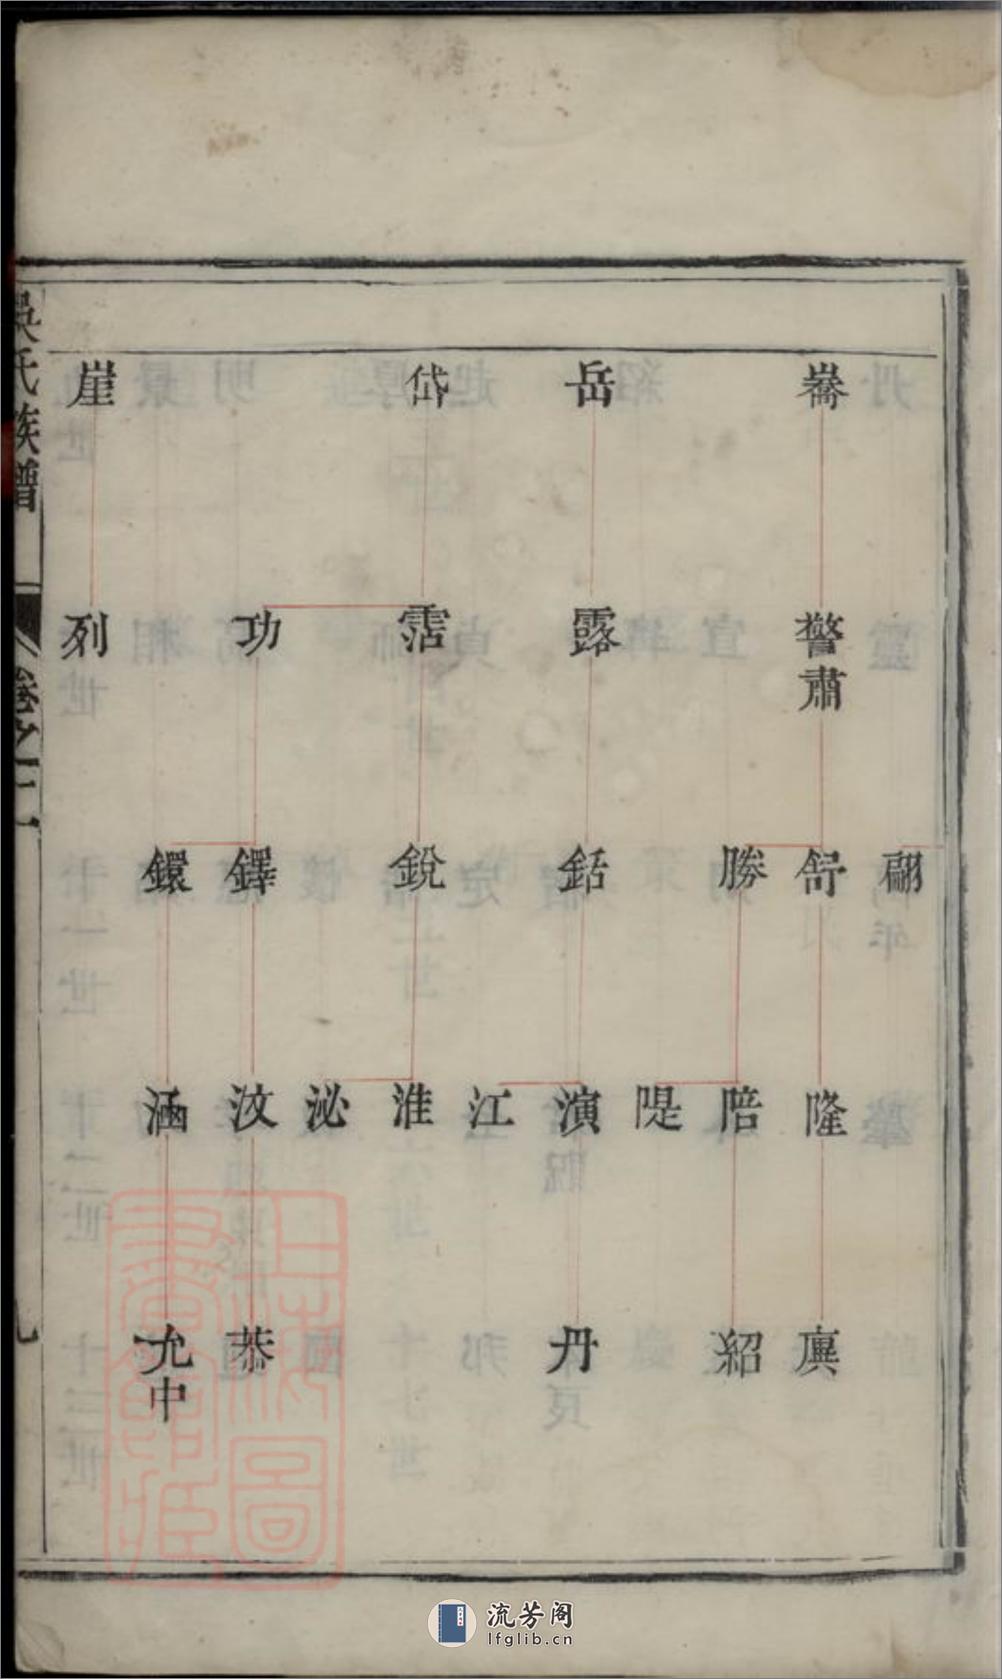 崙 岳 岱 崖
警肅 露 霑 功 列
翮 舒 勝 銛 銳 鐸 鐶
隆 陪 隄 演 江 淮 泌 汶 涵
廙 紹 丹 恭 允中
吳氏族譜
卷之二
九
上海圖書館藏
流芳阁
lfglib.cn